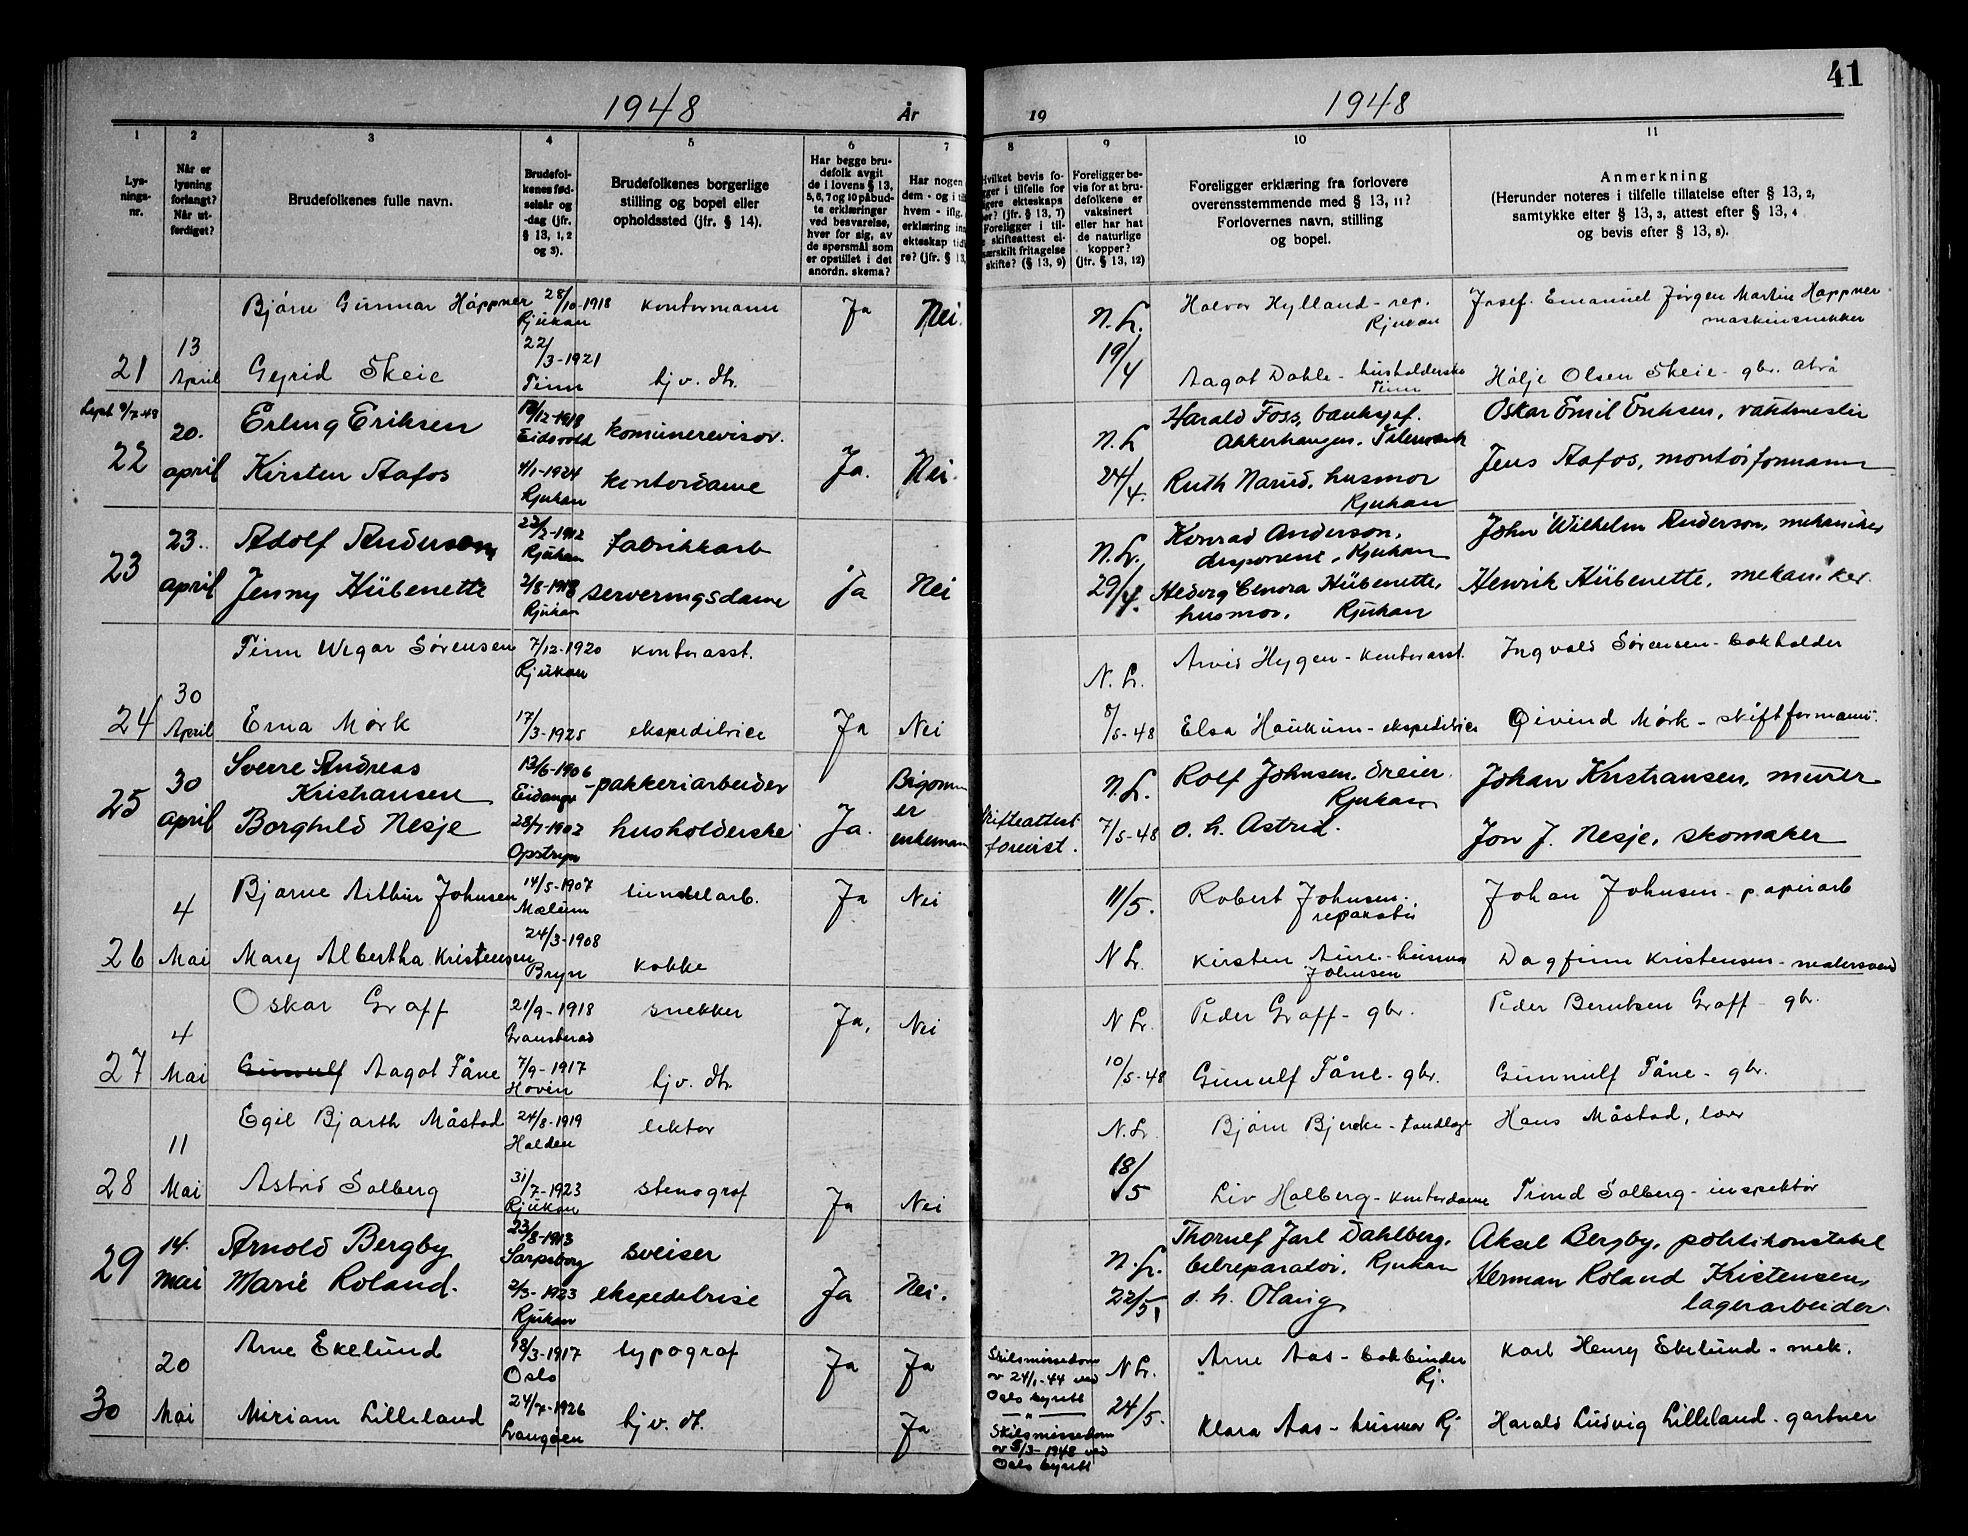 41
1948 År
19 1948
1 2 3 4 5 6 7
8 9 10 11
Lys-
nings-
nr.
Når er
lysning
forlangt?
Når ut-
ferdiget?
Brudefolkenes fulle navn.
Brudefol-
kenes fød-
selsår og
-dag (jfr.
§ 13, 1, 2
og 3).
Brudefolkenes borgerlige
stilling og bopel eller
opholdssted (jfr. § 14).
Har begge bru-
defolk avgit
de i lovens § 13,
5, 6, 7 og 10 påbud-
te erklæringer
ved besvarelse,
hver for sig, av
de spørsmål som
er opstillet i det
anordn. skema?
Har nogen
dem - og i
hvem - iflg.
erklæring
ekteskap
re? (jfr. § 13,
Hvilket bevis fo-
ger i tilfelle for
ligere ekteskaps
er? (jfr. § 13, 7)
Foreligger i til-
e skifteattest el-
særskilt fritagelse
skifte? (§ 13, 9)
Foreligger be-
vis for at bru-
defolkene er
vaksinert
eller har hat
de naturlige
kopper?
(jfr. § 13, 12)
Foreligger erklæring fra forlovere
overensstemmende med § 13, 11?
Forlovernes navn, stilling
og bopel.
Anmerkning
(Herunder noteres i tilfelle tillatelse efter § 13, 2,
samtykke efter § 13, 3, attest efter § 13, 4
og bevis efter § 13, 8).
Bjørn Gunnar Höppner 28/10-1918 Rjukan kontormann Ja Nei. N.L. Halvor Hylland - rep. Rjukan Josef Emanuel Jørgen Martin Höppner maskinsnekker
21 13 April Gyrid Skeie 22/3-1921 Tinn hj v. dtr. 19/4 Aagot Dahle - husholderske Tinn Hølje Olsen Skeie - gbr. Atrå
20. Erling Eriksen /12-1918 Eidsvold komunerevisor. Ja. Nei. N.L Harald Foss, banksjef. Akkerhaugen, Telemark Oskar Emil Eriksen, vaktmester
22 april Kirsten Aafos 4/1-1924 Rjukan kontordame 24/4. Ruth Narud, husmor Rjukan Jens Aafos, montørformann
23. Adolf Anderson 1912 Rjukan fabrikkarb Ja Nei N.L. Konrad Anderson, disponent, Rjukan John Wilhelm Anderson, mekaniker
23 april Jenny Hübenette 2/8-1918 Rjukan serveringsdame 29/4. Hedvig Lenora Hübenette, husmor. Rjukan Henrik Hübenette, mekaniker.
Finn Wegar Sørensen 7/12-1920 Rjukan kontorasst. N.L. Arvid Hygen - kontorasst. Ingvald Sørensen - bokholder
24 30 April Erna Mørk 17/3-1925 ekspeditrice Ja Nei 8/5-48 Elsa Haukum - ekspeditrice Øivind Mørk - skiftformann.
30 Sverre Andreas Kristiansen 13/6-1906 Eidanger pakkeriarbeider Ja. Brudgommen er enkemann Skifteattest forevist. N.L. Rolf Johnsen, dreier. Rjukan Johan Kristiansen, murer
25 april Borghild Nesje 28/7-1902 Opstryn husholderske 7/5-48 o. h. Astrid. Jon J. Nesje, skomaker
4 Bjarne Arthur Johnsen 14/5-1907 Mælum tundelarb. Ja Nei 11/5. Robert Johnsen. reparatør Johan Johnsen - papirarb
26 Mai Mary Albertha Kristensen 24/3-1908 Bryn kokke N L. Kirsten Aune Johnsen - husmor Dagfinn Kristensen - malersvend
4 Oskar Graff 21/9-1918 Gransherad snekker Ja, Nei N L. Peder Graff - gbr. Peder Berntsen Graff - gbr.
27 Mai Gunnulf Aagot Tåne 7/9-1917 Hovin hj v. dtr. 10/5-48 Gunnulf Tåne - gbr. Gunnulf Tåne - gbr.
11 Egil Bjarth Måstad 24/8-1919 Halden lektor N.L. Bjørn Bjercke - tandlæge Hans Måstad, lærer
28 Mai Astrid Solberg 31/7-1923 Rjukan stenograf Ja Nei 18/5 Liv Halberg - kontordame Trond Solberg - inspektør
14. Arnold Bergby 23/8-1913 Sarpsborg sveiser N.L. Thorulf Jarl Dahlberg, bilreparatør, Rjukan Aksel Bergby, politikonstabel
29 mai Marie Roland. 2/3-1923 Rjukan ekspeditrise Ja Nei. 22/5, o. h. Olaug Herman Roland Kristensen, lagerarbeider.
20 Arne Ekelund 18/3-1917 Oslo typograf Ja Ja Skilsmissedom av 24/1-44 ved Oslo byrett N L. Arne Aas - bokbinder Rj. Karl Henry Ekelund - mek.
30 Mai Miriam Lilleland 24/7-1926 Langøen hj v. dt. Ja Skilsmissedom av 5/3-1948 ved Oslo byrett 24/5. Klara Aas - husmor Rj Harald Ludvig Lilleland - gartner